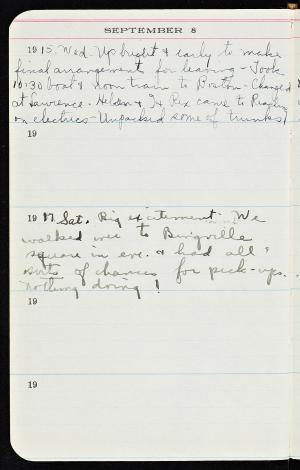 SEPTEMBER 8
1915. Wed. Up bright & early to make
final arrangement for leaving - Took
10:30 boat & noon train to Boston - Changed
at Lawrence. Helen & Rex came to Reading
on electrics - Unpacked some of trunks
19
1917 Sat. Big excitement. We
walked over to
square in eve. & had all
sorts of chances for pick-ups.
Nothing doing!
19
19